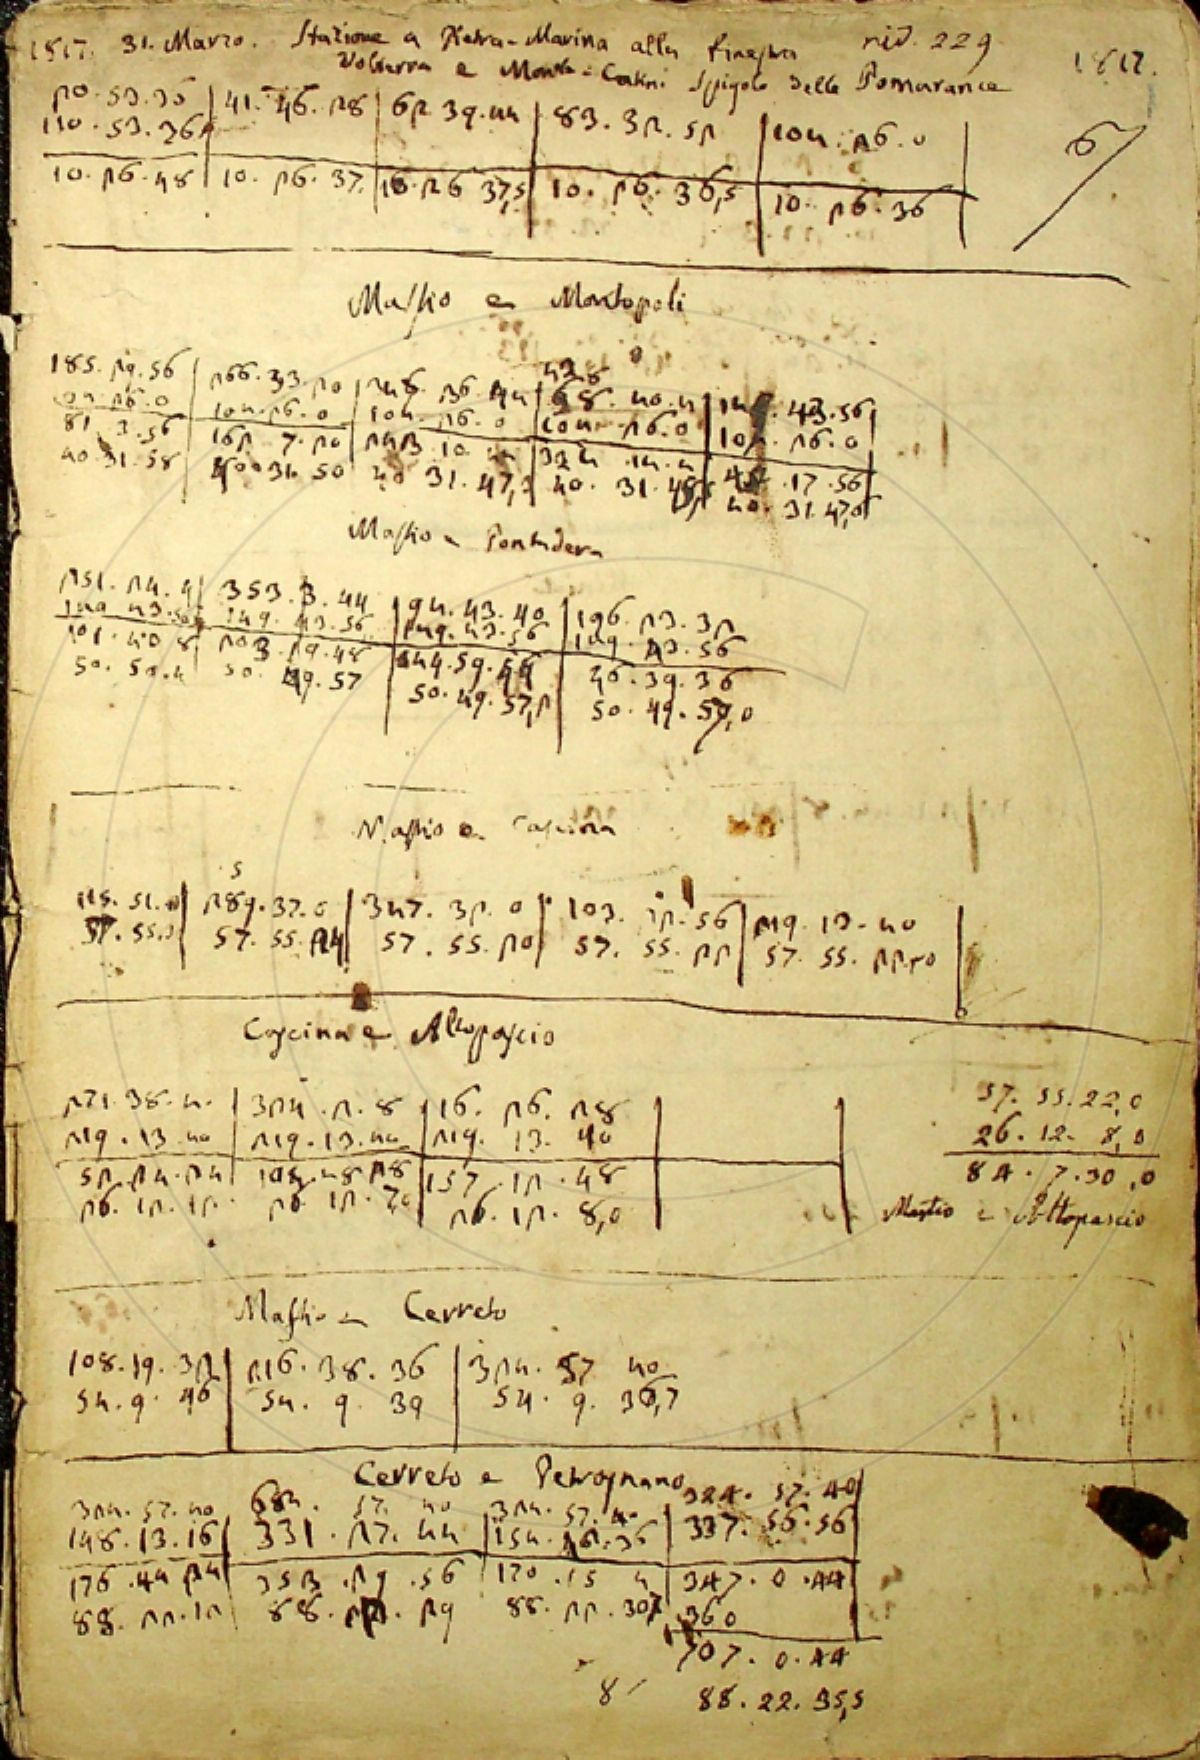 1817. 31. Marzo. Stazione a Pietra-Marina alla finestra rid. 229 1817.
Volterra e Monte-Catini Spigolo delle Pomarance
20.53.36 41.46.28 62.39.44 83.32.52 104.26.0 6
10.26.48 10.26.37 10.26.37,5 10.26.36,5 10.26.36
Mastio e Montopoli
428
185.29.56 266.33.20 347.36.44 68.40.4 149.43.56
104.26.0 104.26.0 104.26.0 104.26.0 104.26.0
81.3.56 162.7.20 243.10.44 324.14.4 45.17.56
40.31.58 40.31.50 40.31.47,3 40.31.45,5 40.31.47,6
Mastio e Pontedera
251.24.4 353.3.44 94.43.40 196.23.32
149.43.56 149.43.56 149.43.56 149.43.56
101.40.8 203.19.48 304.59.44 46.39.36
50.50.4 50.49.57 50.49.57,2 50.49.57,0
Mastio e Cascina
115.51. 289.37.0 347.32.0 103.22.56 219.13.40
57.55. 57.55.24 57.55.20 57.55.22 57.55.22,0
Cascina e Altopascio
271.38.4 324.2.8 16.26.28 57.55.22,0
219.13.40 219.13.40 219.13.40 26.12.8,0
52.24.24 104.48.28 157.12.48 84.7.30,0
26.12.12 26.12.7,0 26.12.8,0 Mastio e Altopascio
Mastio e Cerreto
108.19.32 216.38.36 324.57.40
54.9.46 54.9.39 54.9.36,7
Cerreto e Petrognano
324.57.40 684.57.40 324.57.40 324.57.40
148.13.16 331.27.44 154.42.36 337.56.56
176.44.24 353.29.56 170.15.4 347.0.44
88.22.12 88.22.29 88.22.30,7 360
707.0.44
8 88.22.35,5